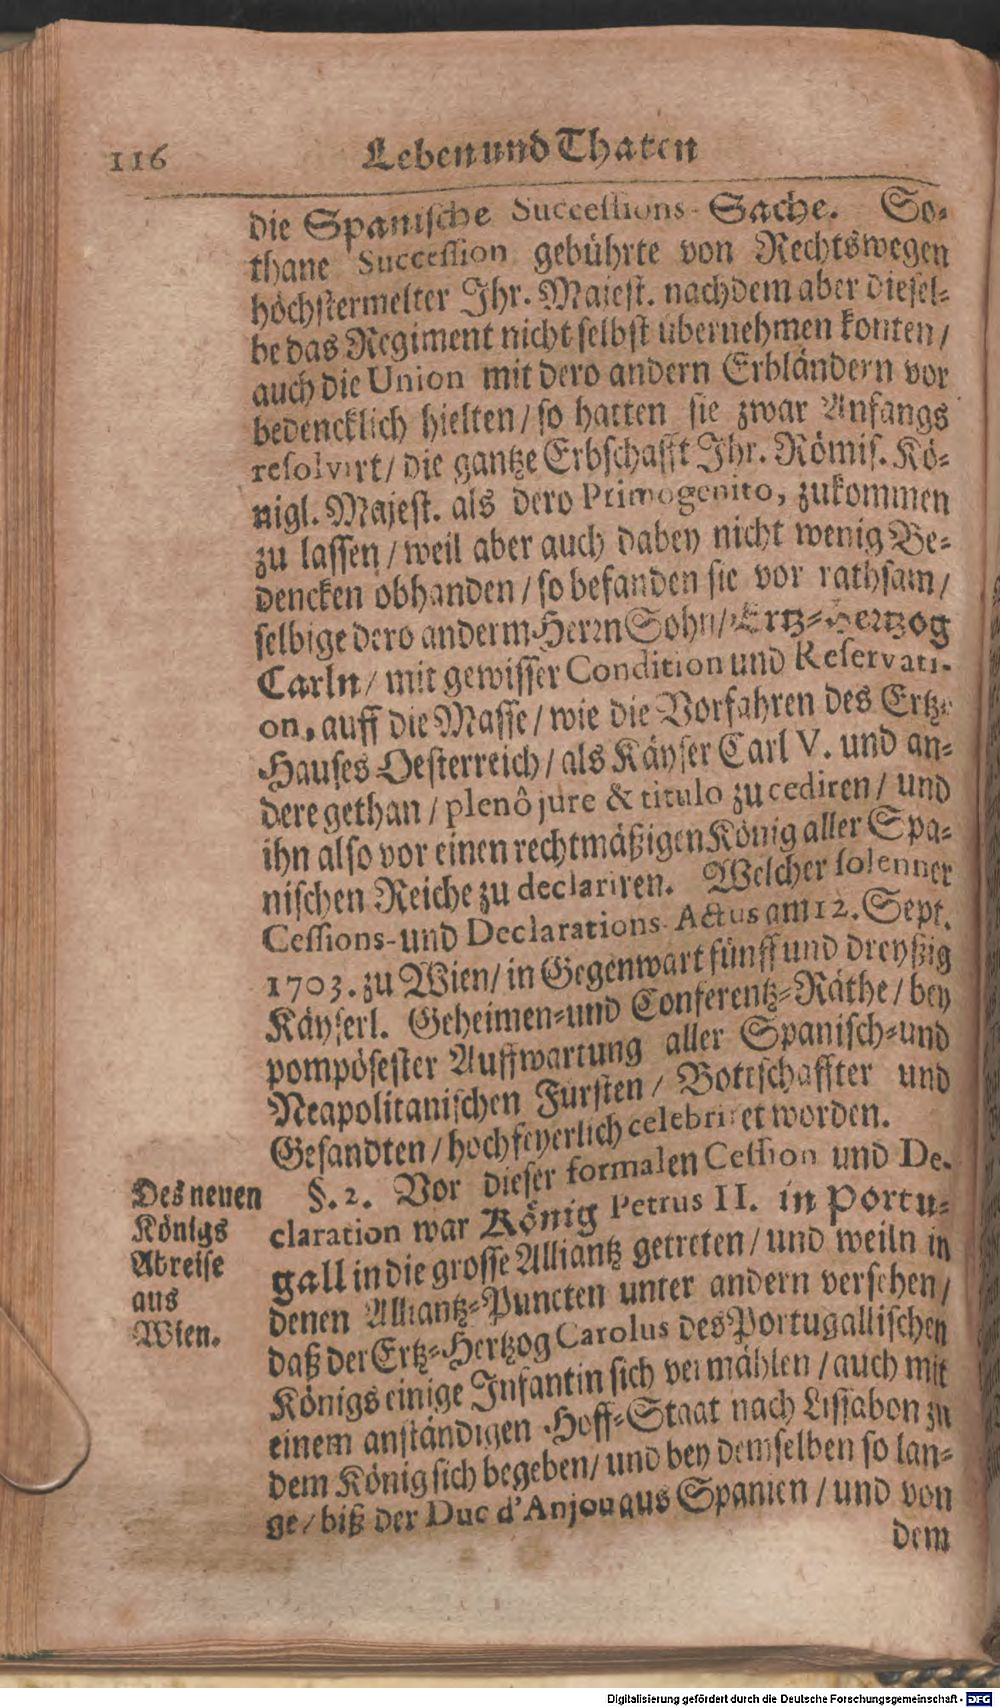 116 Leben und Thaten
die Spanische Successions-Sache. So-
thane Succession gebührte von Rechtswegen
höchstermelter Ihr. Majest. nachdem aber diesel-
be das Regiment nicht selbst übernehmen konten/
auch die Union mit dero andern Erbländern vor
bedencklich hielten/ so hatten sie zwar Anfangs
resolvirt/ die gantze Erbschafft Ihr. Römis. Kö-
nigl. Majest. als dero Primogenito, zukommen
zu lassen/ weil aber auch dabey nicht wenig Be-
dencken obhanden/ so befanden sie vor rathsam/
selbige dero anderm Herrn Sohn/ Ertz-Hertzog
Carln/ mit gewisser Condition und Reservati-
on, auff die Masse/ wie die Vorfahren des Ertz-
Hauses Oesterreich/ als Käyser Carl V. und an-
dere gethan/ plenô jure & titulo zu cediren/ und
ihn also vor einen rechtmäßigen König aller Spa-
nischen Reiche zu declariren. Welcher solenner
Cessions- und Declarations-Actus am 12. Sept.
1703. zu Wien/ in Gegenwart fünff und dreyßig
Käyserl. Geheimen- und Conferentz-Räthe/ bey
pompösester Auffwartung aller Spanisch- und
Neapolitanischen Fürsten/ Bottschaffter und
Gesandten/ hochfeyerlich celebriret worden.
Des neuen
Königs
Abreise
aus
Wien.
§. 2. Vor dieser formalen Cession und De-
claration war König Petrus II. in Portu-
gall in die grosse Alliantz getreten/ und weiln in
denen Alliantz-Puncten unter andern versehen/
daß der Ertz-Hertzog Carolus des Portugallischen
Königs einige Infantin sich vermählen/ auch mit
einem anständigen Hoff-Staat nach Lissabon zu
dem König sich begeben/ und bey demselben so lan-
ge/ biß der Duc d'Anjou aus Spanien/ und von
dem
Digitalisierung gefördert durch die Deutsche Forschungsgemeinschaft - DFG